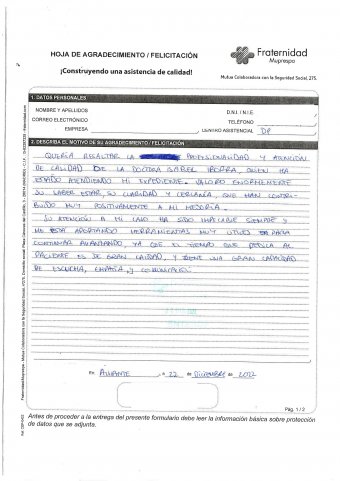 HOJA DE AGRADECIMIENTO / FELICITACIÓN
Fraternidad
Muprespa
¡Construyendo una asistencia de calidad!
Mutua Colaboradora con la Seguridad Social, 275.
1. DATOS PERSONALES
NOMBRE Y APELLIDOS
D.N.I. / N.I.E.
CORREO ELECTRONICO
TELÉFONO
EMPRESA
CENTRO ASISTENCIAL
2. DESCRIBA EL MOTIVO DE SU AGRADECIMIENTO / FELICITACIÓN
QUERÍA RESALTAR LA PROFESIONALIDAD Y ATENCIÓN
DE CALIDAD DE LA DOCTORA ISABEL IBORRA, QUIEN HA
ESTADO ATENDIENDO MI EXPEDIENTE. VALORO ENORMEMENTE
SU SABER ESTAR, SU CLARIDAD Y CERCANÍA, QUE HAN CONTRI-
BUIDO MUY POSITIVAMENTE A MI MEJORÍA.
SU ATENCIÓN A MI LADO HA SIDO IMPECABLE SIEMPRE Y
ME ESTÁ APORTANDO HERRAMIENTAS MUY ÚTILES PARA
CONTINUAR AVANZANDO, YA QUE EL TIEMPO QUE DEDICA AL
PACIENTE ES DE GRAN CALIDAD, Y TIENE UNA GRAN CAPACIDAD
DE ESCUCHA, EMPATÍA, Y
En ALICANTE, a 22 de DICIEMBRE de 2022
Pág. 1 / 2
Antes de proceder a la entrega del presente formulario debe leer la información básica sobre protección
de datos que se adjunta.